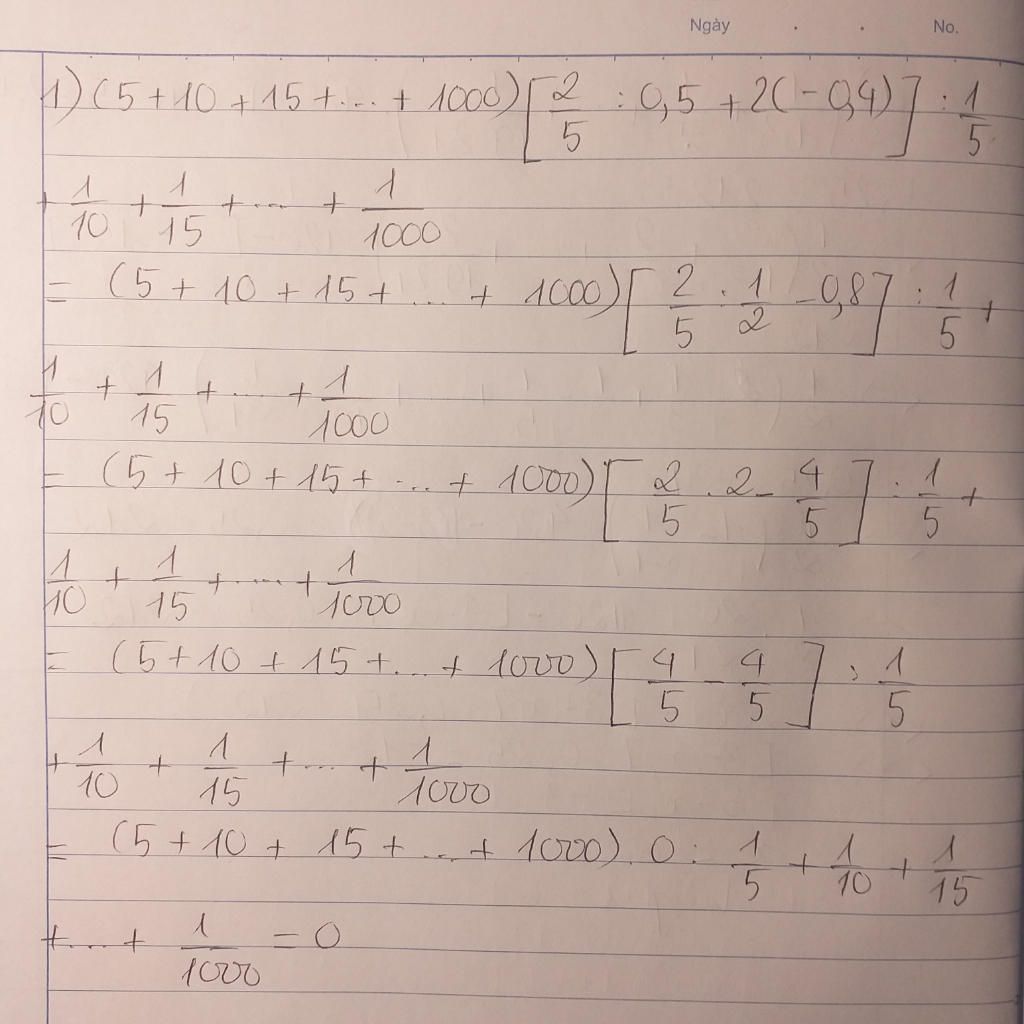 Ngày . . No.
1) (5 + 10 + 15 + ... + 1000) [2/5 : 0,5 + 2(-0,4)] : 1/5
+ 1/10 + 1/15 + ... + 1/1000
= (5 + 10 + 15 + ... + 1000) [2/5 : 1/2 - 0,8] : 1/5 +
1/10 + 1/15 + ... + 1/1000
= (5 + 10 + 15 + ... + 1000) [2/5 . 2 - 4/5] : 1/5 +
1/10 + 1/15 + ... + 1/1000
= (5 + 10 + 15 + ... + 1000) [4/5 - 4/5] : 1/5
+ 1/10 + 1/15 + ... + 1/1000
= (5 + 10 + 15 + ... + 1000) . 0 : 1/5 + 1/10 + 1/15
+ ... + 1/1000 = 0